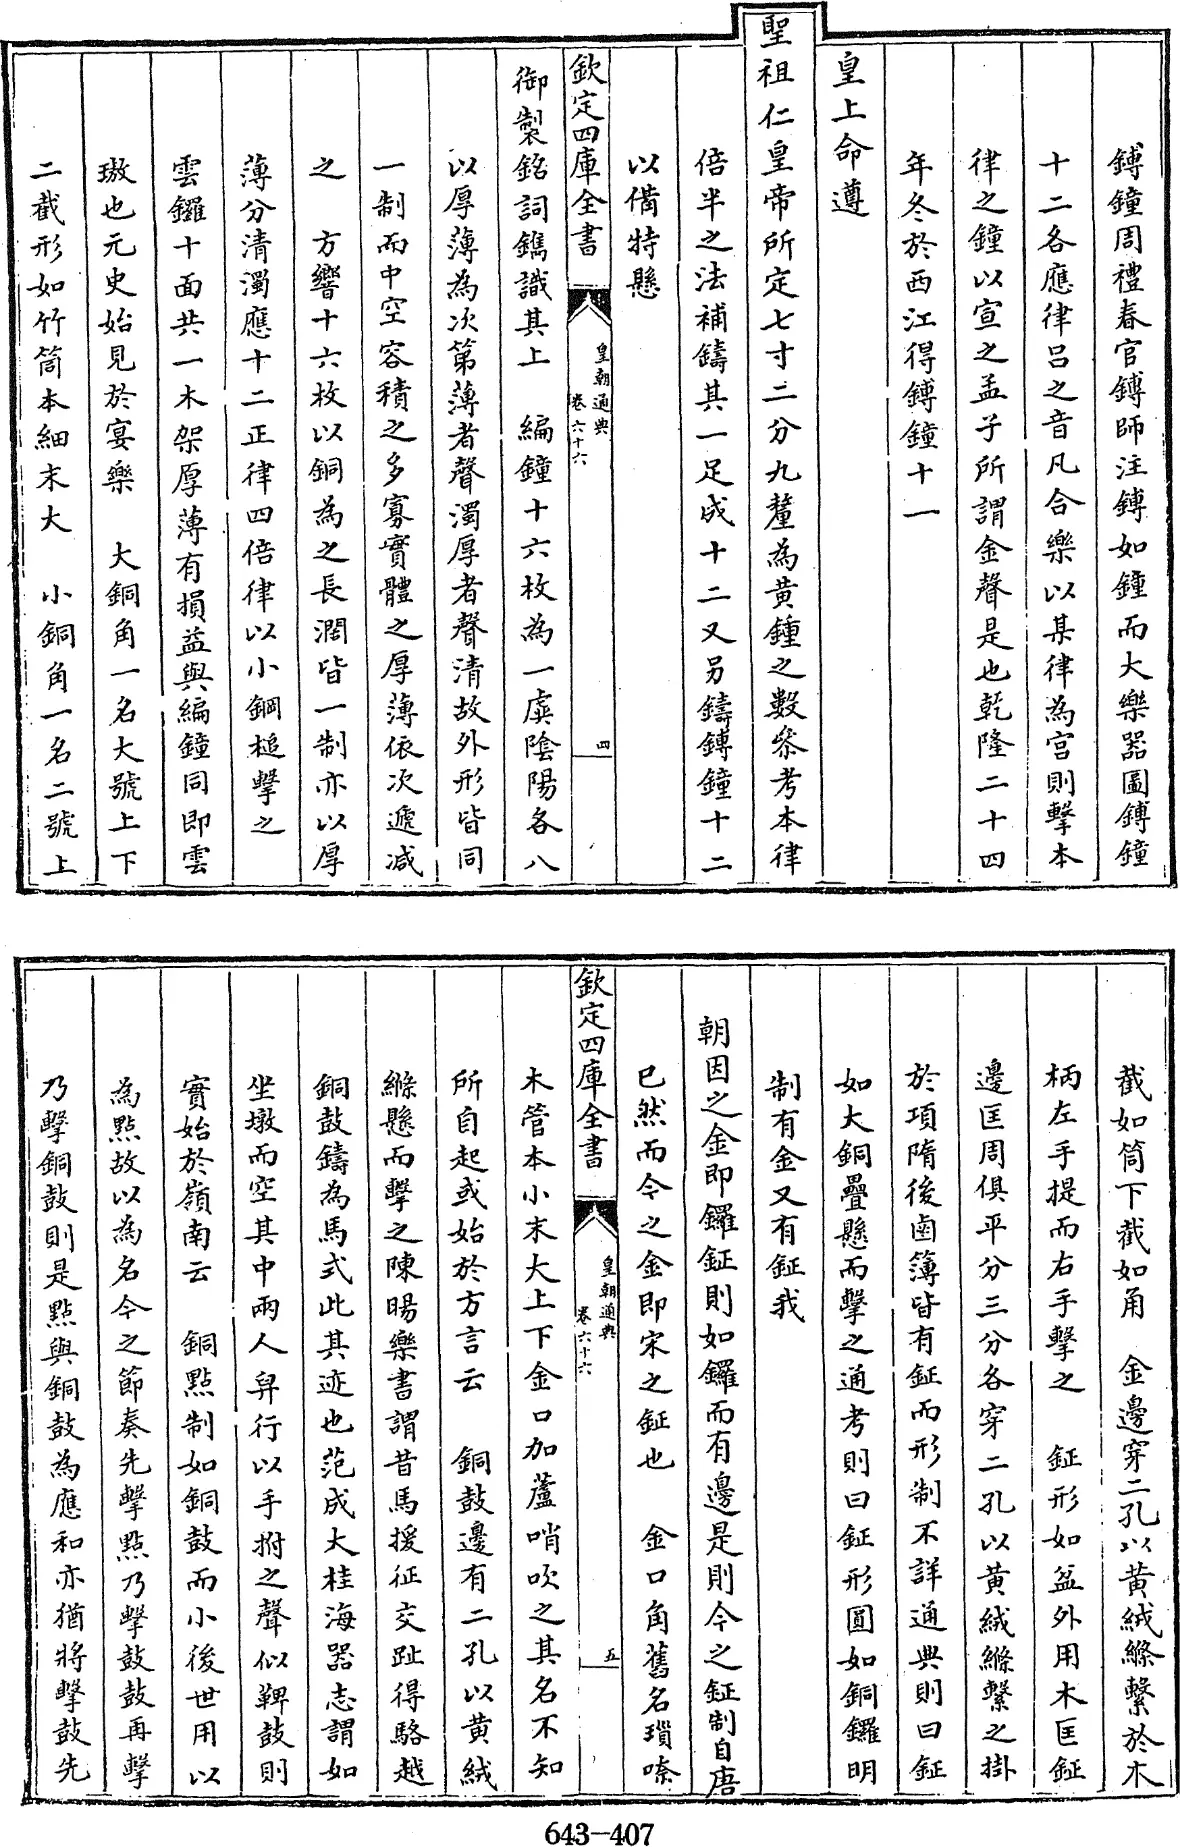 鎛鐘周禮春官鎛師注鎛如鍾而大樂器圖鎛鐘
十二各應律呂之音凡合樂以某律為宮則擊本
律之鐘以宣之孟子所謂金聲是也乾隆二十四
年冬於西江得鎛鐘十一
皇上命遵
聖祖仁皇帝所定七寸二分九釐為黃鍾之數叅考本律
倍半之法補鑄其一足成十二又另鑄鎛鐘十二
以備特懸
欽定四庫全書
皇朝通典
卷六十六
四
御製銘詞鐫識其上 編鐘十六枚為一虡陰陽各八
以厚薄為次第薄者聲濁厚者聲清故外形皆同
一制而中空容積之多寡實體之厚薄依次遞減
之 方響十六枚以銅為之長濶皆一制亦以厚
薄分清濁應十二正律四倍律以小鋼槌擊之
雲鑼十面共一木架厚薄有損益與編鐘同即雲
璈也元史始見於宴樂 大銅角一名大號上下
二截形如竹筒本細末大 小銅角一名二號上
截如筒下截如角 金邊穿二孔以黃絨縧繫於木
柄左手提而右手擊之 鉦形如盆外用木匡鉦
邊匡周俱平分三分各穿二孔以黃絨縧繫之掛
於項隋後鹵簿皆有鉦而形制不詳通典則曰鉦
如大銅疊懸而擊之通考則曰鉦形圓如銅鑼明
制有金又有鉦我
朝因之金即鑼鉦則如鑼而有邊是則今之鉦制自唐
已然而今之金即宋之鉦也 金口角舊名瑣嗦
欽定四庫全書
皇朝通典
卷六十六
五
木管本小末大上下金口加蘆哨吹之其名不知
所自起或始於方言云 銅鼓邊有二孔以黃絨
縧懸而擊之陳暘樂書謂昔馬援征交趾得駱越
銅鼓鑄為馬式此其迹也范成大桂海器志謂如
坐墩而空其中兩人舁行以手拊之聲似鞞鼓則
實始於嶺南云 銅點制如銅鼓而小後世用以
為點故以為名今之節奏先擊點乃擊鼓鼓再擊
乃擊銅鼓則是點與銅鼓為應和亦猶將擊鼓先
643-407